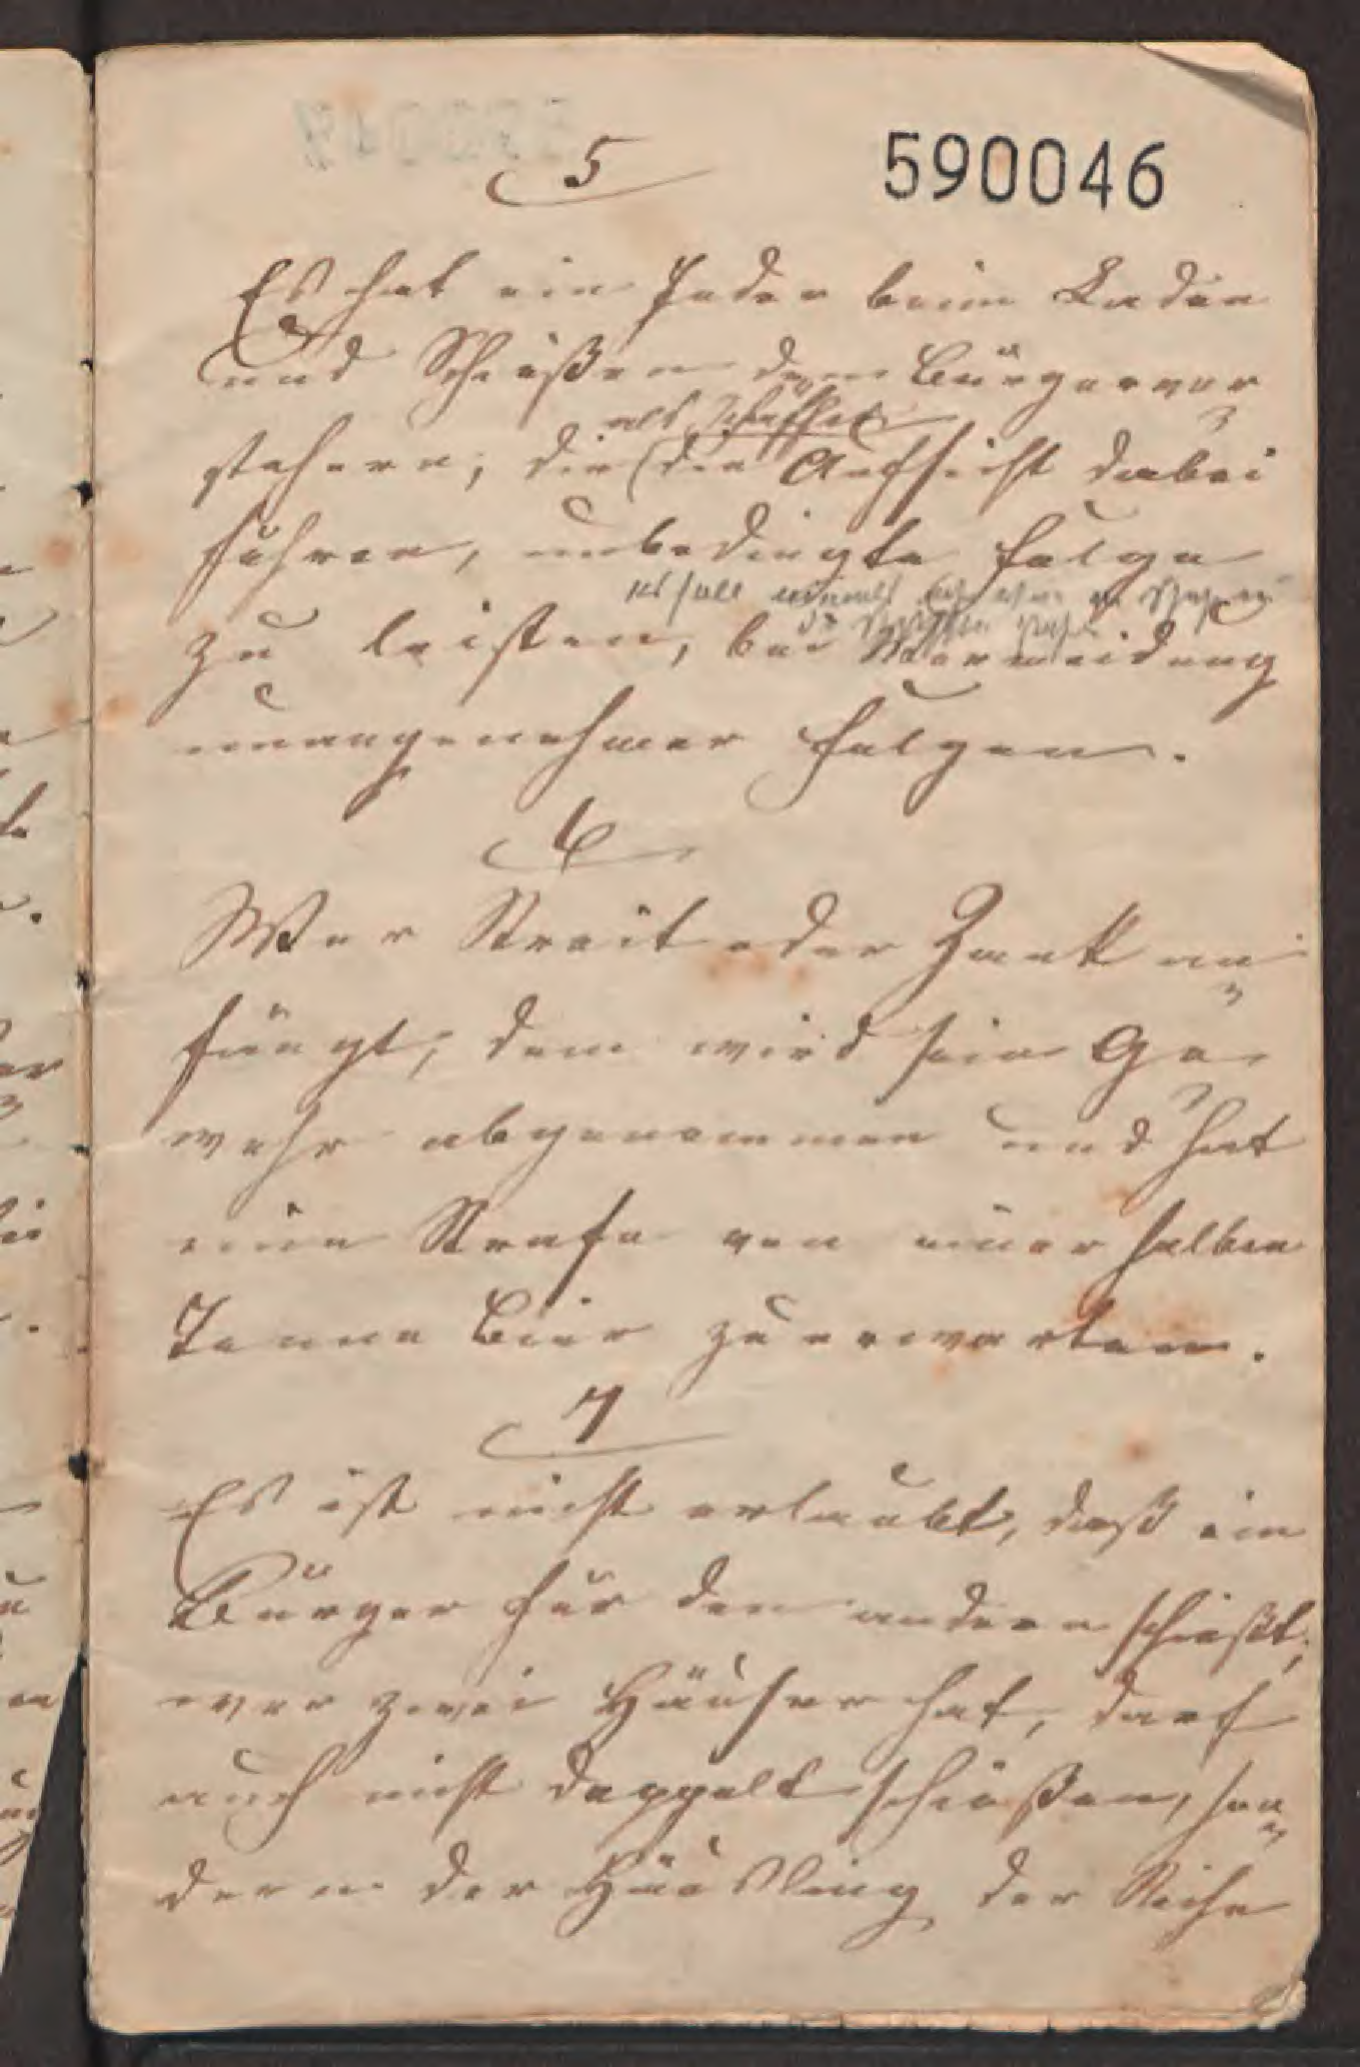 590046
5
Es hat ein Jeder beim Laden
und Schießen dem Bürgervor
als Schaffer
stehern, die (die Aufsicht dabei
führen, unbedingte Folge
es soll niemals
zu leisten, bei Vermeidung
unangenehmer Folgen.
6
Wer Streit oder Zank an
fängt, dem wird sein Ge
wehr abgenommen und hat
eine Strafe von einer halben
Tonne Bier zu erwarten.
7
Es ist nicht erlaubt, daß ein
Bürger für den andern schießt,
wer zwei Häuser hat, darf
auch nicht doppelt schießen, son
dern der Häusling der Reihe